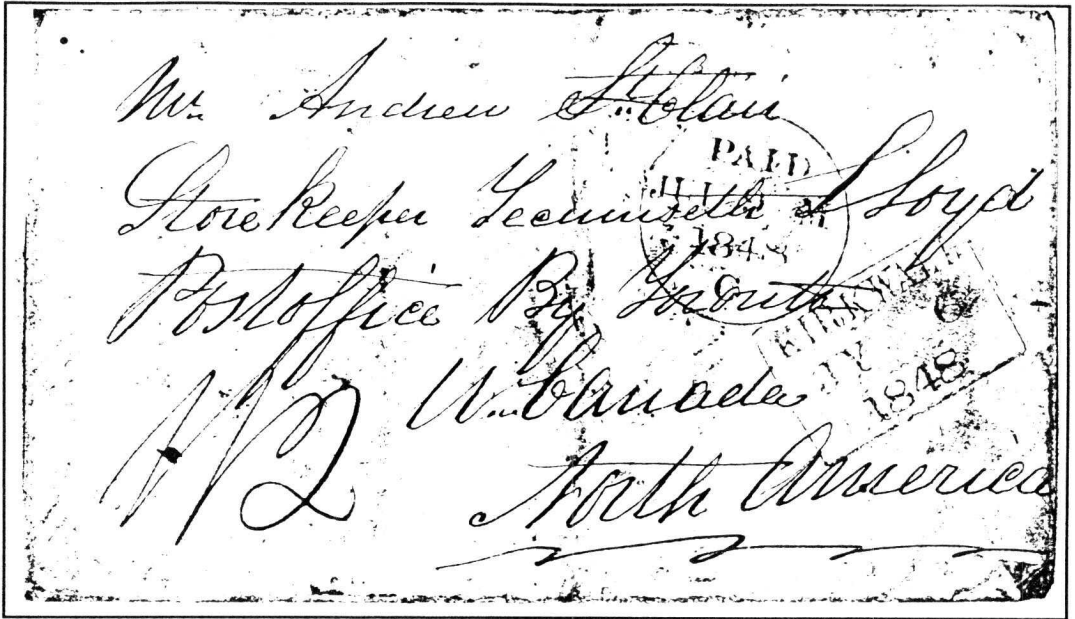 Mr. Andrew St. Clair
Storekeeper Tecumseth Lloyd
Postoffice By Toronto
U. Canada
North America
1/2
PAID
1848
C
KIRKWALL
JY 6
1848